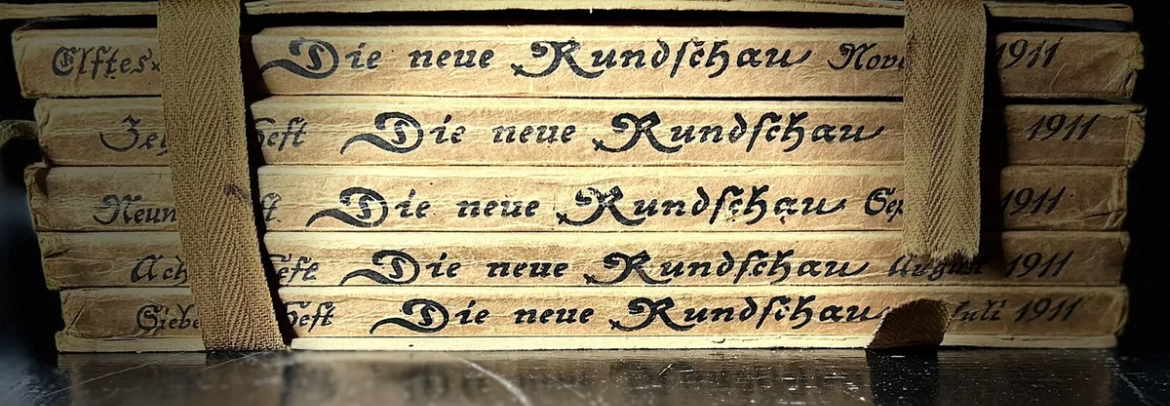 Elftes Die neue Rundschau Nove 1911
Zeh Heft Die neue Rundschau 1911
Neun ft Die neue Rundschau Sep 1911
Ach Heft Die neue Rundschau August 1911
Siebe Heft Die neue Rundschau Juli 1911